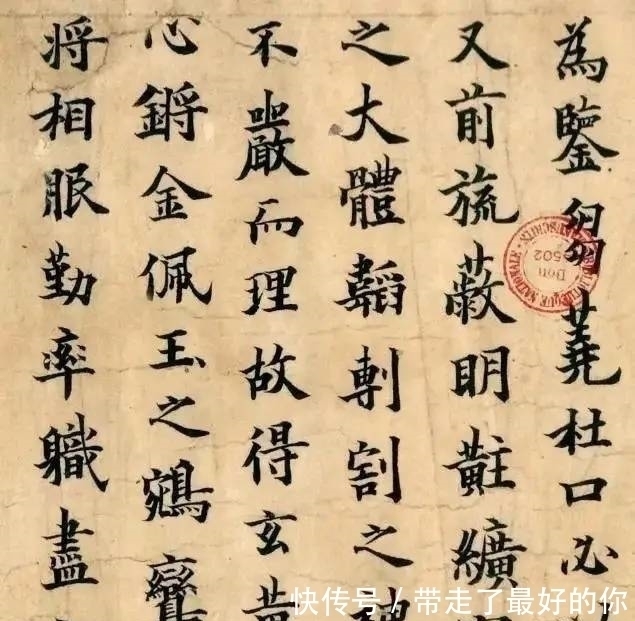 為鑒芻蕘杜口必
又前旒蔽明黈纊
之大體韜剸割之
不嚴而理故得玄黃
心鏘金佩玉之鵷鸞
将相服勤率職盡
NATIONALE
Don
快传号 / 带走了最好的你